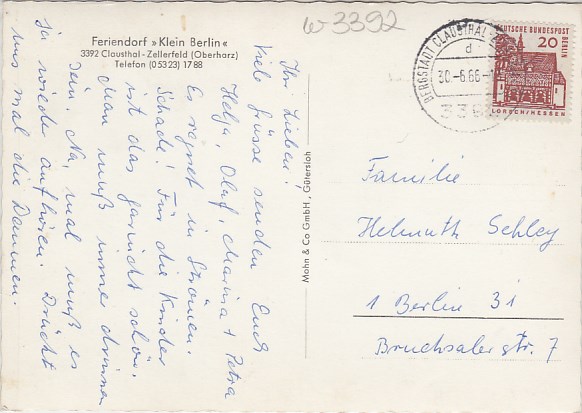 w 3392
Feriendorf »Klein Berlin«
3392 Clausthal-Zellerfeld (Oberharz)
Telefon (05323) 1788
Ihr Lieben!
Viele Grüsse senden Euch
Helga, Olaf, Marina + Petra
Es regnet in Strömen.
Schade! Für die Kinder
ist das garnicht schön.
Man muß immer drinnen
sein. Na, mal muß es
ja wieder aufhören. Drückt
uns mal die Daumen.
Mohn & Co GmbH, Gütersloh
BERGSTADT CLAUSTHAL-
d
30.-6.66.-
DEUTSCHE BUNDESPOST
BERLIN
20
LORSCH/HESSEN
Familie
Helmuth Schley
1 Berlin 31
Bruchsaler str. 7